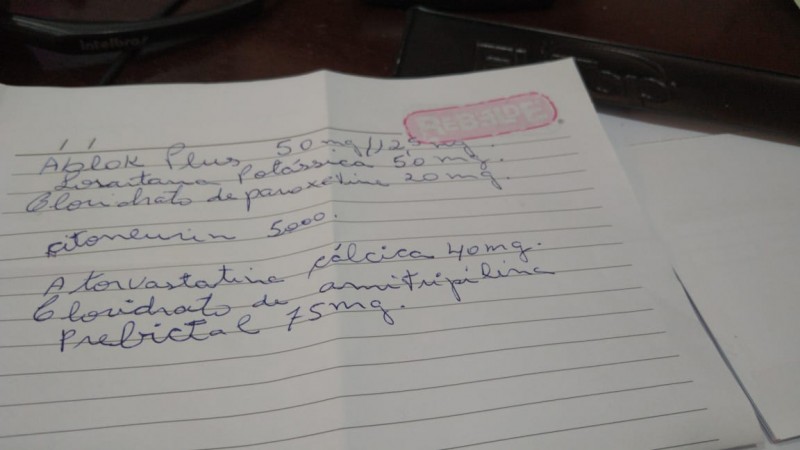 intelbras
REBELDE
/ /
Ablok Plus 50mg/12,5mg.
Losartana Potássica 50 mg.
Cloridrato de paroxetina 20 mg.
Citoneurin 5000.
Atorvastatina cálcica 40mg.
Cloridrato de amitripilina
Prebictal 75mg.